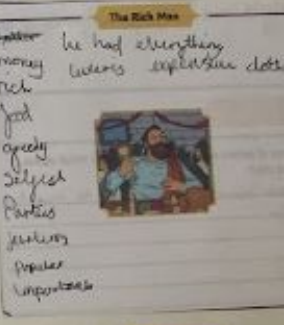 The Rich Man
he had everything
money wears expensive cloth
rich
food
greedy
Selfish
Parties
jewelery
Popular